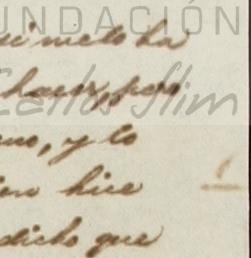 FUNDACIÓN
me lo ha
hacer, pero
Carlos Slim
no, y lo
hice
dicho que